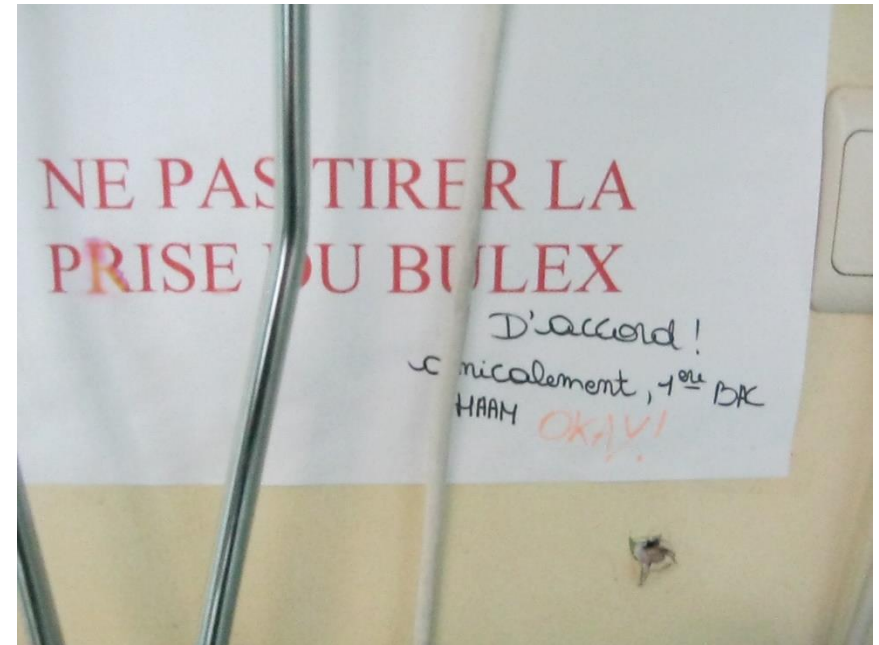 NE PAS TIRER LA
PRISE DU BULEX
D'accord !
nicalement, 1ère BAC
HAAM OKAY!